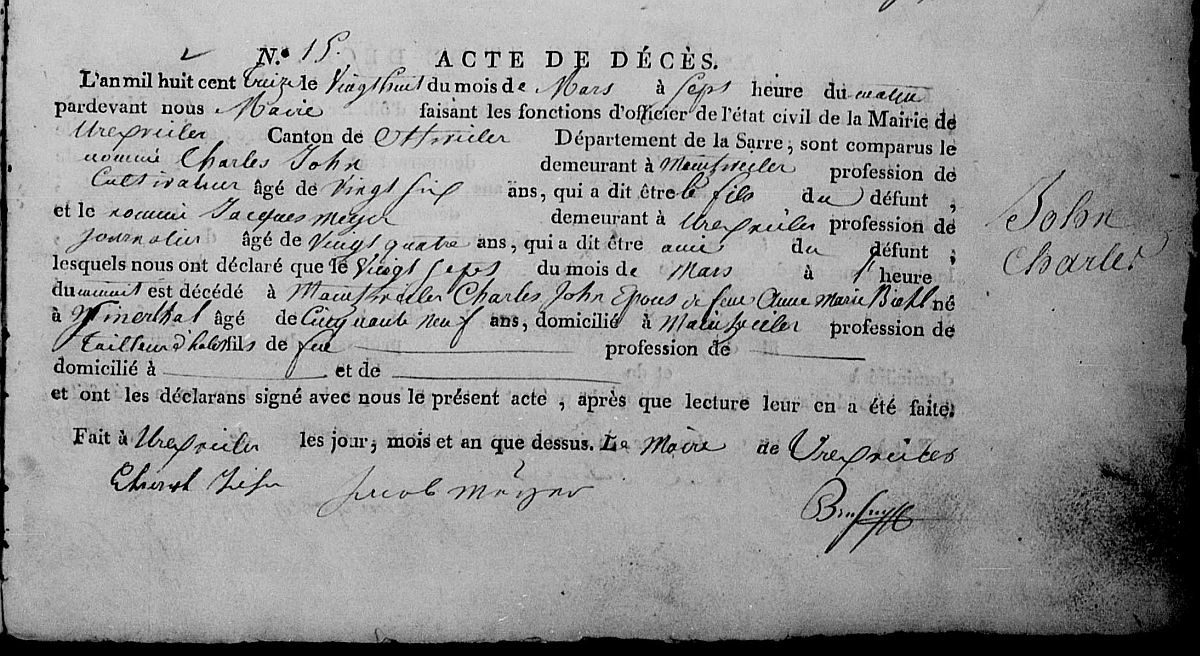 N.° 15. ACTE DE DÉCÈS.
L'an mil huit cent treize le vingt huit du mois de Mars à sept heure du matin
pardevant nous Maire faisant les fonctions d'officier de l'état civil de la Mairie de
Urexweiler Canton de Ottweiler Département de la Sarre, sont comparus le
nommé Charles John demeurant à Maintzweiler profession de
Cultivateur âgé de vingt six ans, qui a dit être le fils du défunt,
et le nommé Jacques Meyer demeurant à Urexweiler profession de
journalier âgé de vingt quatre ans, qui a dit être amis du défunt,
lesquels nous ont déclaré que le vingt sept du mois de Mars à heure
du minuit est décédé à Maintzweiler Charles John Epous de feue Anne Marie né
à âgé de Cinquante neuf ans, domicilié à Maintzweiler profession de
tailleur d'habits fils de feu profession de
domicilié à et de
et ont les déclarans signé avec nous le présent acte, après que lecture leur en a été faite.
Fait à Urexweiler les jour, mois et an que dessus. Le Maire de Urexweiler
Jacob Meyer
John
Charles